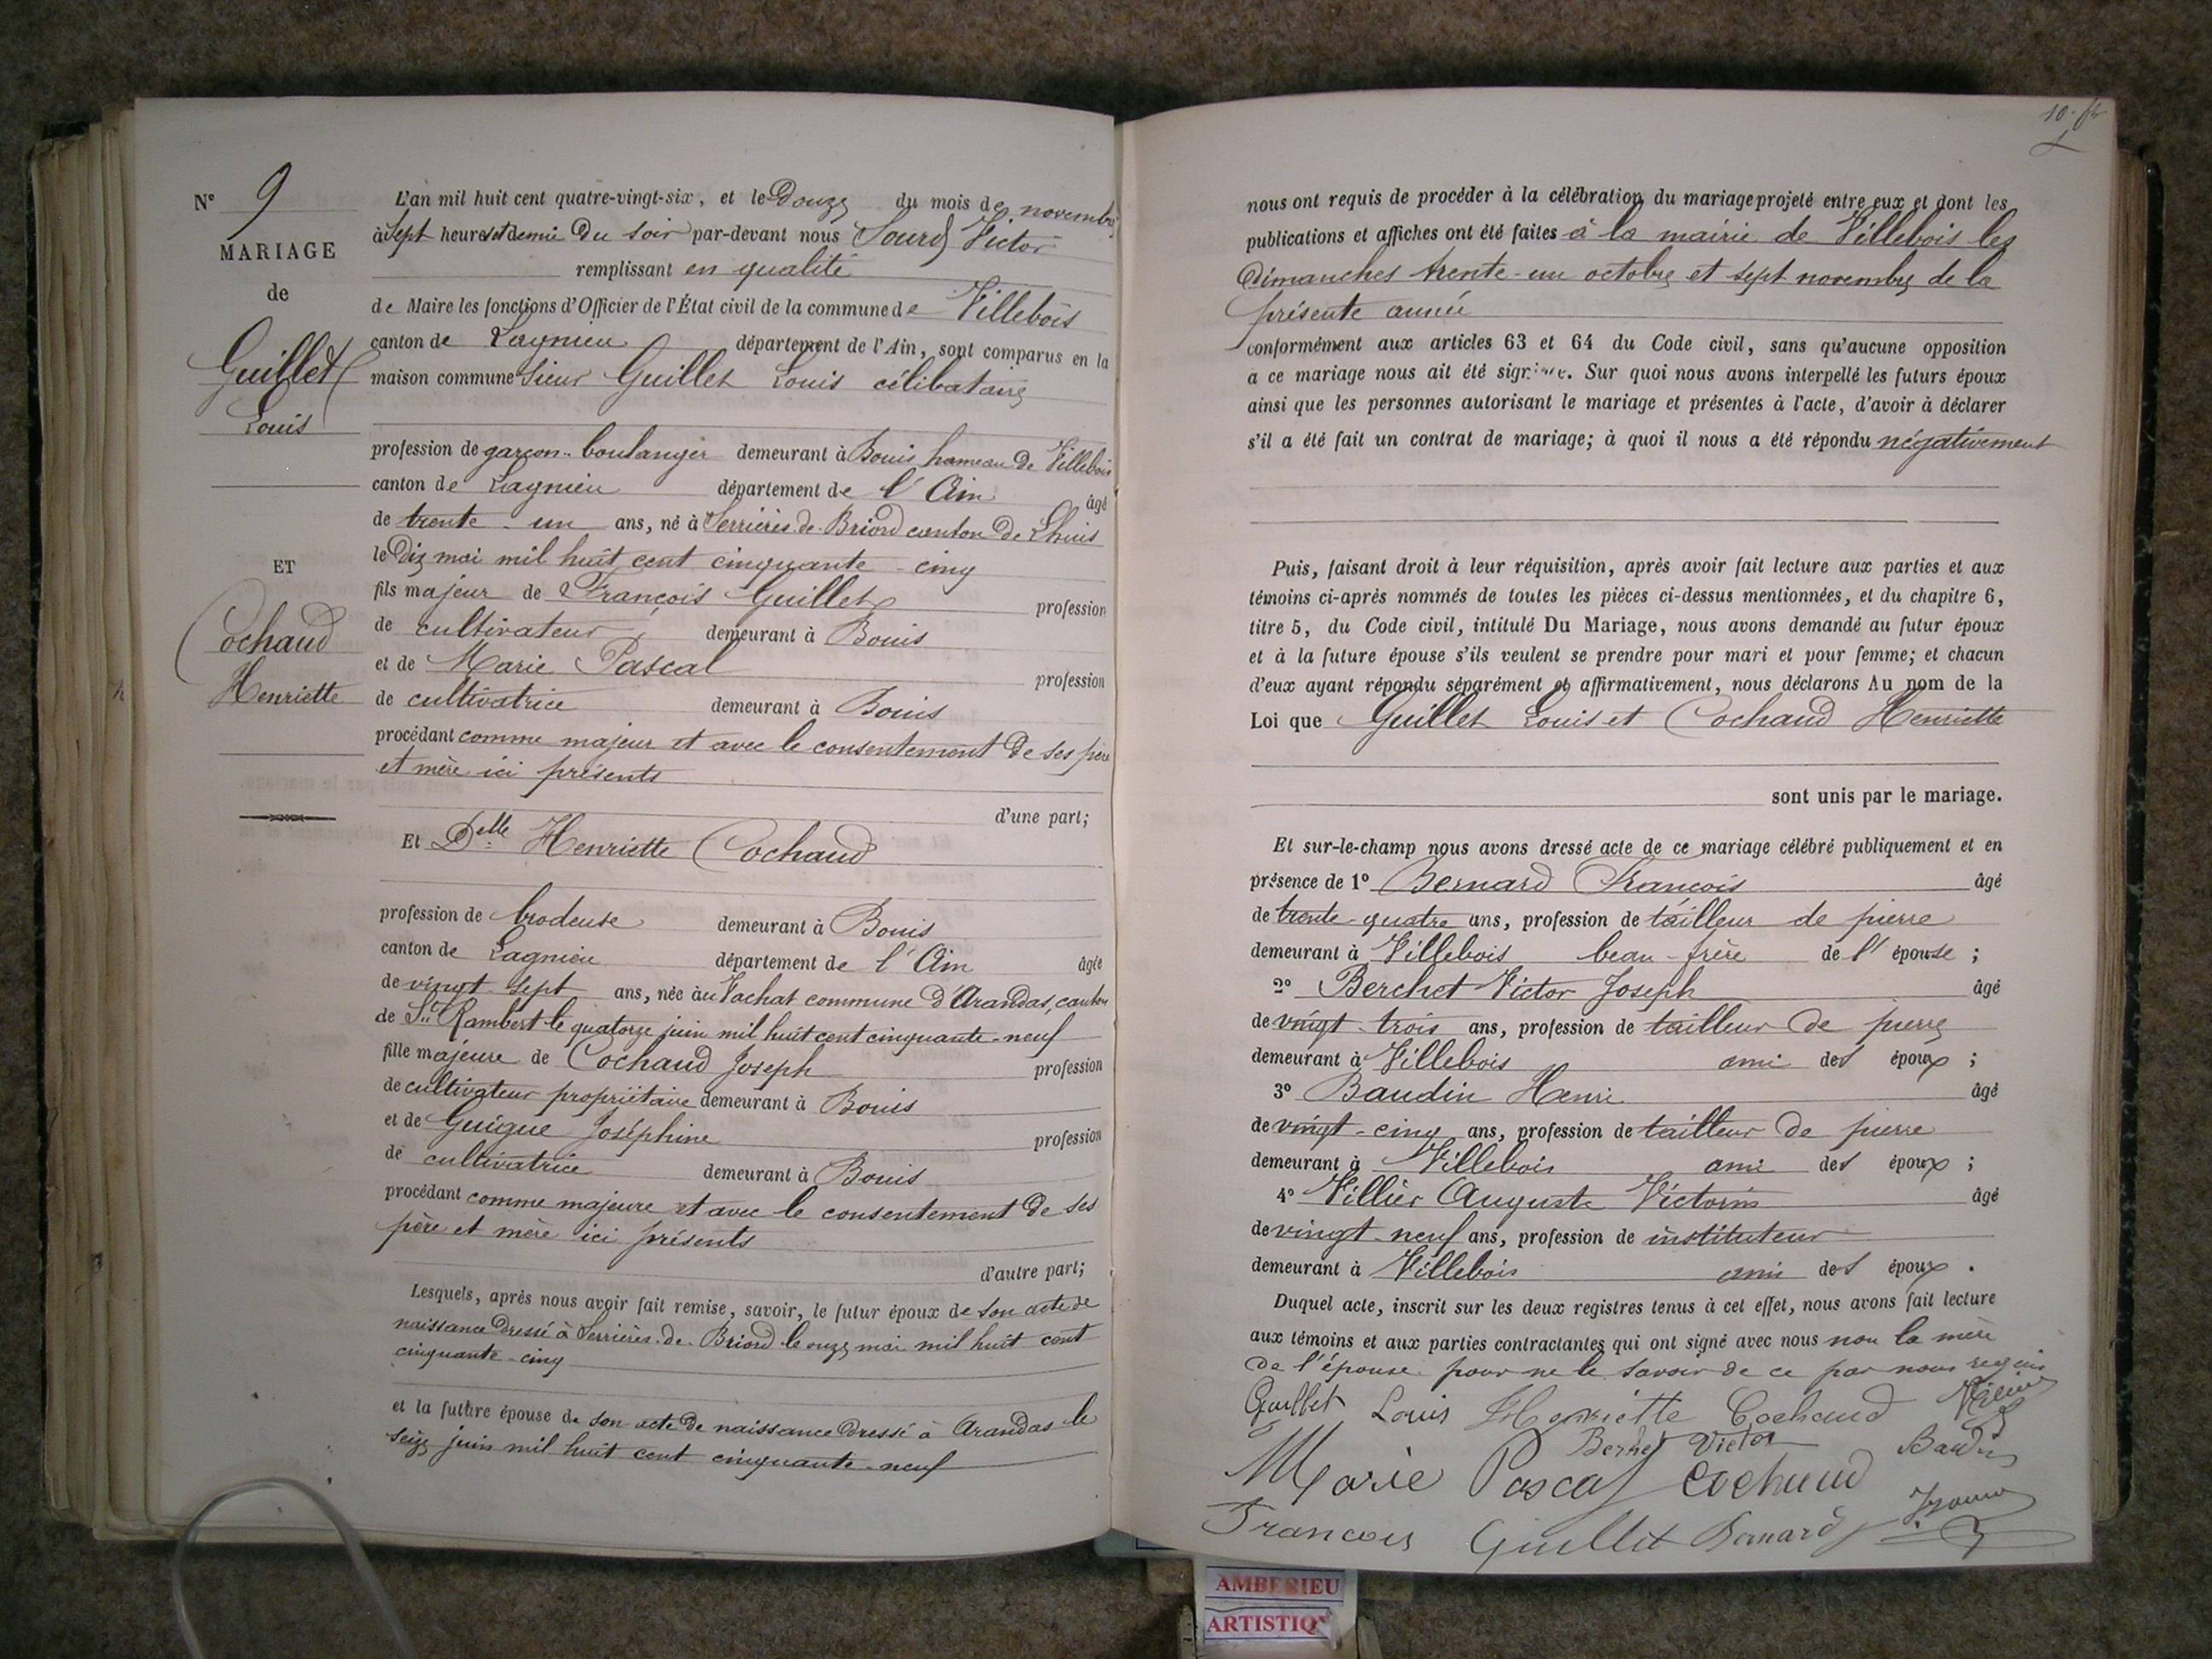 N° 9
MARIAGE
de
Guillet
Louis
ET
Cochaud
Henriette
L'an mil huit cent quatre-vingt-six, et le Douze du mois de novembre
à Sept heures et demie Du soir par-devant nous Sourd Victor
remplissant en qualité
de Maire les fonctions d'Officier de l'État civil de la commune de Villebois
canton de Lagnieu département de l'Ain, sont comparus en la
maison commune Sieur Guillet Louis célibataire
profession de garçon-boulanger demeurant à Bouis hameau De Villebois
canton de Lagnieu département de l'Ain âgé
de trente-un ans, né à Serrières-de-Briord canton De Lhuis
le Dix mai mil huit cent cinquante-cinq
fils majeur de François Guillet profession
de cultivateur demeurant à Bouis
et de Marie Pascal profession
de cultivatrice demeurant à Bouis
procédant comme majeur et avec le consentement De ses père
et mère ici présents
d'une part;
Et Delle Henriette Cochaud
profession de brodeuse demeurant à Bouis
canton de Lagnieu département de l'Ain âgée
de vingt-sept ans, née au Vachat commune D'Arandas, canton
de St Rambert le quatorze juin mil huit cent cinquante-neuf
fille majeure de Cochaud Joseph profession
de cultivateur propriétaire demeurant à Bouis
et de Guigue Joséphine profession
de cultivatrice demeurant à Bouis
procédant comme majeure et avec le consentement De ses
père et mère ici présents
d'autre part;
Lesquels, après nous avoir fait remise, savoir, le futur époux de son acte de
naissance Dressé à Serrières-de-Briord le onze mai mil huit cent
cinquante-cinq
et la future épouse de son acte De naissance Dressé à Arandas le
seize juin mil huit cent cinquante-neuf
10
nous ont requis de procéder à la célébration du mariage projeté entre eux et dont les
publications et affiches ont été faites à la mairie de Villebois les
Dimanches trente-un octobre et sept novembre de la
présente année
conformément aux articles 63 et 64 du Code civil, sans qu'aucune opposition
a ce mariage nous ait été signifiée. Sur quoi nous avons interpellé les futurs époux
ainsi que les personnes autorisant le mariage et présentes à l'acte, d'avoir à déclarer
s'il a été fait un contrat de mariage; à quoi il nous a été répondu négativement
Puis, faisant droit à leur réquisition, après avoir fait lecture aux parties et aux
témoins ci-après nommés de toutes les pièces ci-dessus mentionnées, et du chapitre 6,
titre 5, du Code civil, intitulé Du Mariage, nous avons demandé au futur époux
et à la future épouse s'ils veulent se prendre pour mari et pour femme; et chacun
d'eux ayant répondu séparément et affirmativement, nous déclarons Au nom de la
Loi que Guillet Louis et Cochaud Henriette
sont unis par le mariage.
Et sur-le-champ nous avons dressé acte de ce mariage célébré publiquement et en
présence de 1° Bernard François âgé
de trente-quatre ans, profession de tailleur de pierre
demeurant à Villebois beau-frère de l'épouse ;
2° Berchet Victor Joseph âgé
de vingt-trois ans, profession de tailleur De pierre
demeurant à Villebois ami des époux ;
3° Baudin Henri âgé
de vingt-cinq ans, profession de tailleur De pierre
demeurant à Villebois ami des époux ;
4° Villier Auguste Victorin âgé
de vingt-neuf ans, profession de instituteur
demeurant à Villebois ami des époux .
Duquel acte, inscrit sur les deux registres tenus à cet effet, nous avons fait lecture
aux témoins et aux parties contractantes qui ont signé avec nous non la mère
de l'épouse pour ne le savoir de ce par nous requis
Guillet Louis Henriette Cochaud
Berchet Victor Baudin
Marie Pascal Cochaud
Francois Guillet Bernard
AMBERIEU
ARTISTIQ